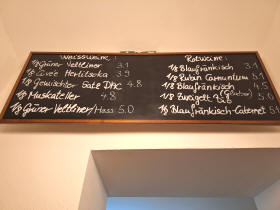 Weissweine:
1/8 Grüner Veltliner 3.1
1/8 Cuvée 3.9
1/8 Gemischter Satz DAC 4.8
1/8 Muskateller 4.8
1/8 Grüner Veltliner/Hass 5.0
Rotweine:
1/8 Blaufränkisch
1/8 Rubin Carnuntum 5.1
1/8 Blaufränkisch 4.5
1/8 Zweigelt
1/8 Blaufränkisch-Cabernet